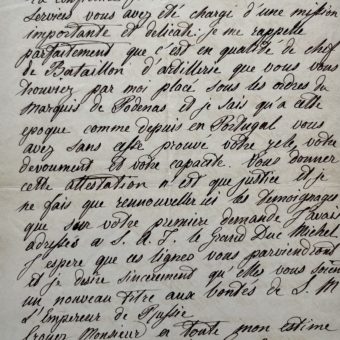 la
services vous avez été chargé d'une mission
importante et délicate: je me rappelle
parfaitement que c'est en qualité de chef
de Bataillon d'artillerie que vous vous
trouviez par moi placé sous les ordres du
Marquis de Bodenas et je sais qu'à cette
epoque comme depuis en Portugal vous
avez sans cesse prouvé votre zele, votre
devoument et votre capacité. Vous donner
cette attestation n'est que justice et je
ne fais que rennouveller ici les temoignages
que sur votre première demande j'avais
adressés a S. A. I. le Grand Duc Michel
J'espere que ces lignes vous parviendront
et je désire sincerement qu'elles vous soient
un nouveau titre aux bontés de S. M
L'Empereur de Russie
Croyez Monsieur a toute mon estime